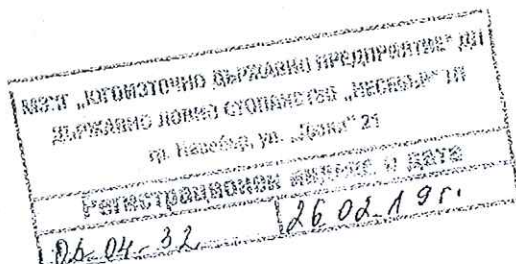 МЗХГ „ЮГОИЗТОЧНО ДЪРЖАВНО ПРЕДПРИЯТИЕ" ДП
ДЪРЖАВНО ЛОВНО СТОПАНСТВО „НЕСЕБЪР" ТП
гр. Несебър, ул. „Дюни" 21
Регистрационен индекс и дата
26.02.19 г.